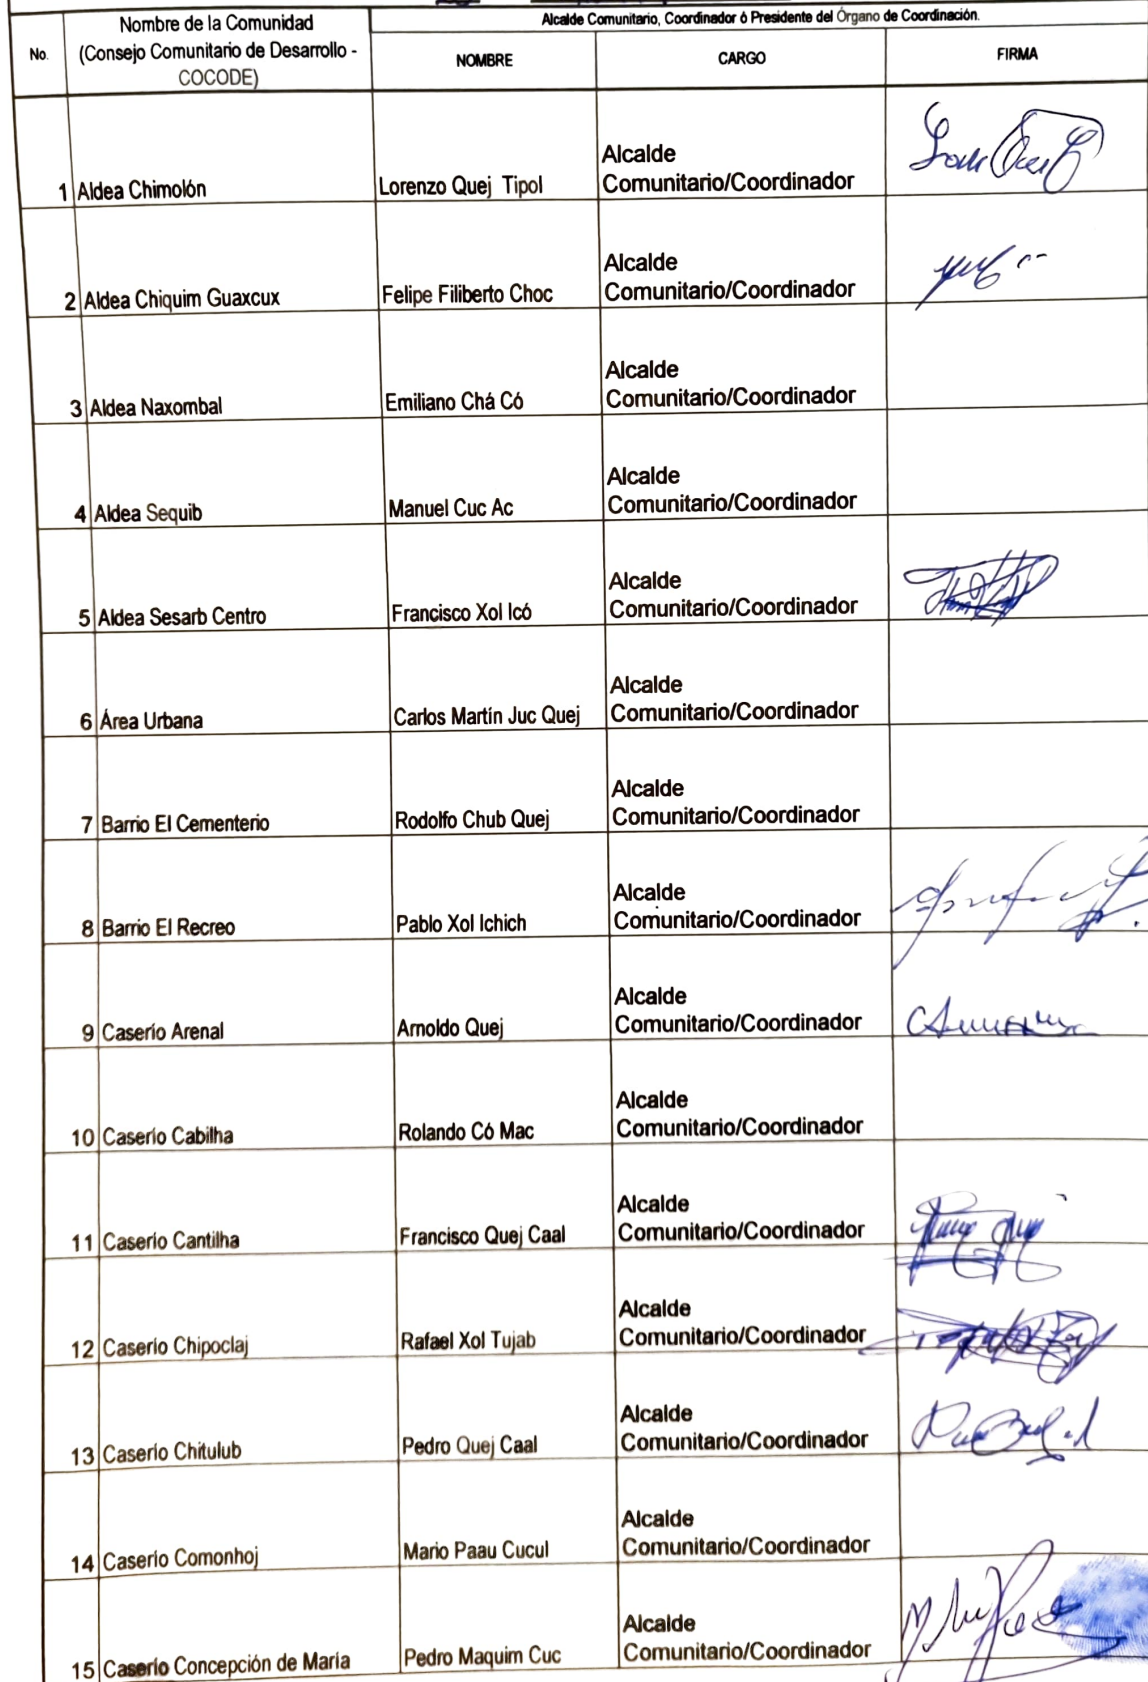 Nombre de la Comunidad
(Consejo Comunitario de Desarrollo -
COCODE)
Alcalde Comunitario, Coordinador ó Presidente del Órgano de Coordinación.
No.
NOMBRE
CARGO
FIRMA
1 Aldea Chimolón Lorenzo Quej Tipol Alcalde
Comunitario/Coordinador
2 Aldea Chiquim Guaxcux Felipe Filiberto Choc Alcalde
Comunitario/Coordinador
3 Aldea Naxombal Emiliano Chá Có Alcalde
Comunitario/Coordinador
4 Aldea Sequib Manuel Cuc Ac Alcalde
Comunitario/Coordinador
5 Aldea Sesarb Centro Francisco Xol Icó Alcalde
Comunitario/Coordinador
6 Área Urbana Carlos Martín Juc Quej Alcalde
Comunitario/Coordinador
7 Barrio El Cementerio Rodolfo Chub Quej Alcalde
Comunitario/Coordinador
8 Barrio El Recreo Pablo Xol Ichich Alcalde
Comunitario/Coordinador
9 Caserío Arenal Arnoldo Quej Alcalde
Comunitario/Coordinador
10 Caserío Cabilha Rolando Có Mac Alcalde
Comunitario/Coordinador
11 Caserío Cantilha Francisco Quej Caal Alcalde
Comunitario/Coordinador
12 Caserío Chipoclaj Rafael Xol Tujab Alcalde
Comunitario/Coordinador
13 Caserío Chitulub Pedro Quej Caal Alcalde
Comunitario/Coordinador
14 Caserío Comonhoj Mario Paau Cucul Alcalde
Comunitario/Coordinador
15 Caserío Concepción de María Pedro Maquim Cuc Alcalde
Comunitario/Coordinador